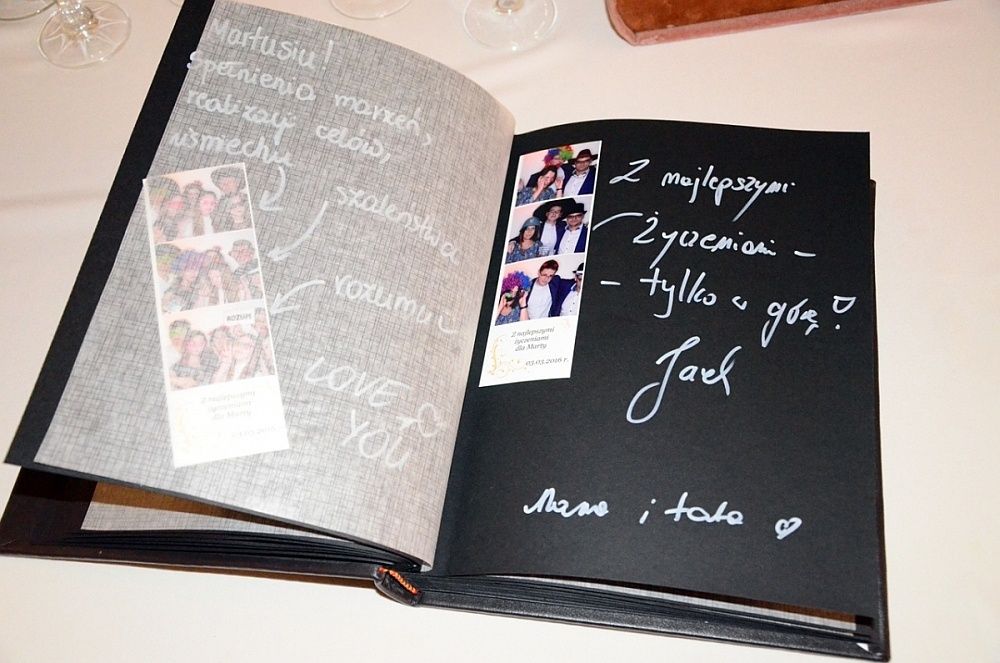 Martusiu!
Spełnienia marzeń,
realizacji celów,
uśmiechu
szaleństwa
rozumu
LOVE
YOU
ROZUM
Z najlepszymi
życzeniami
dla Marty
03.03.2016
Z najlepszymi
życzeniami -
- tylko w górę!
Z najlepszymi
życzeniami
dla Marty
03.03.2016 r.
Mama i tata